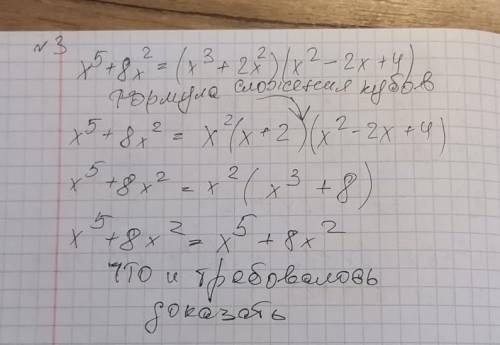 №3
x⁵+8x² = (x³+2x²)(x²-2x+4)
Формула сложения кубов
x⁵+8x² = x²(x+2)(x²-2x+4)
x⁵+8x² = x²(x³+8)
x⁵+8x² = x⁵+8x²
что и требовалось
доказать